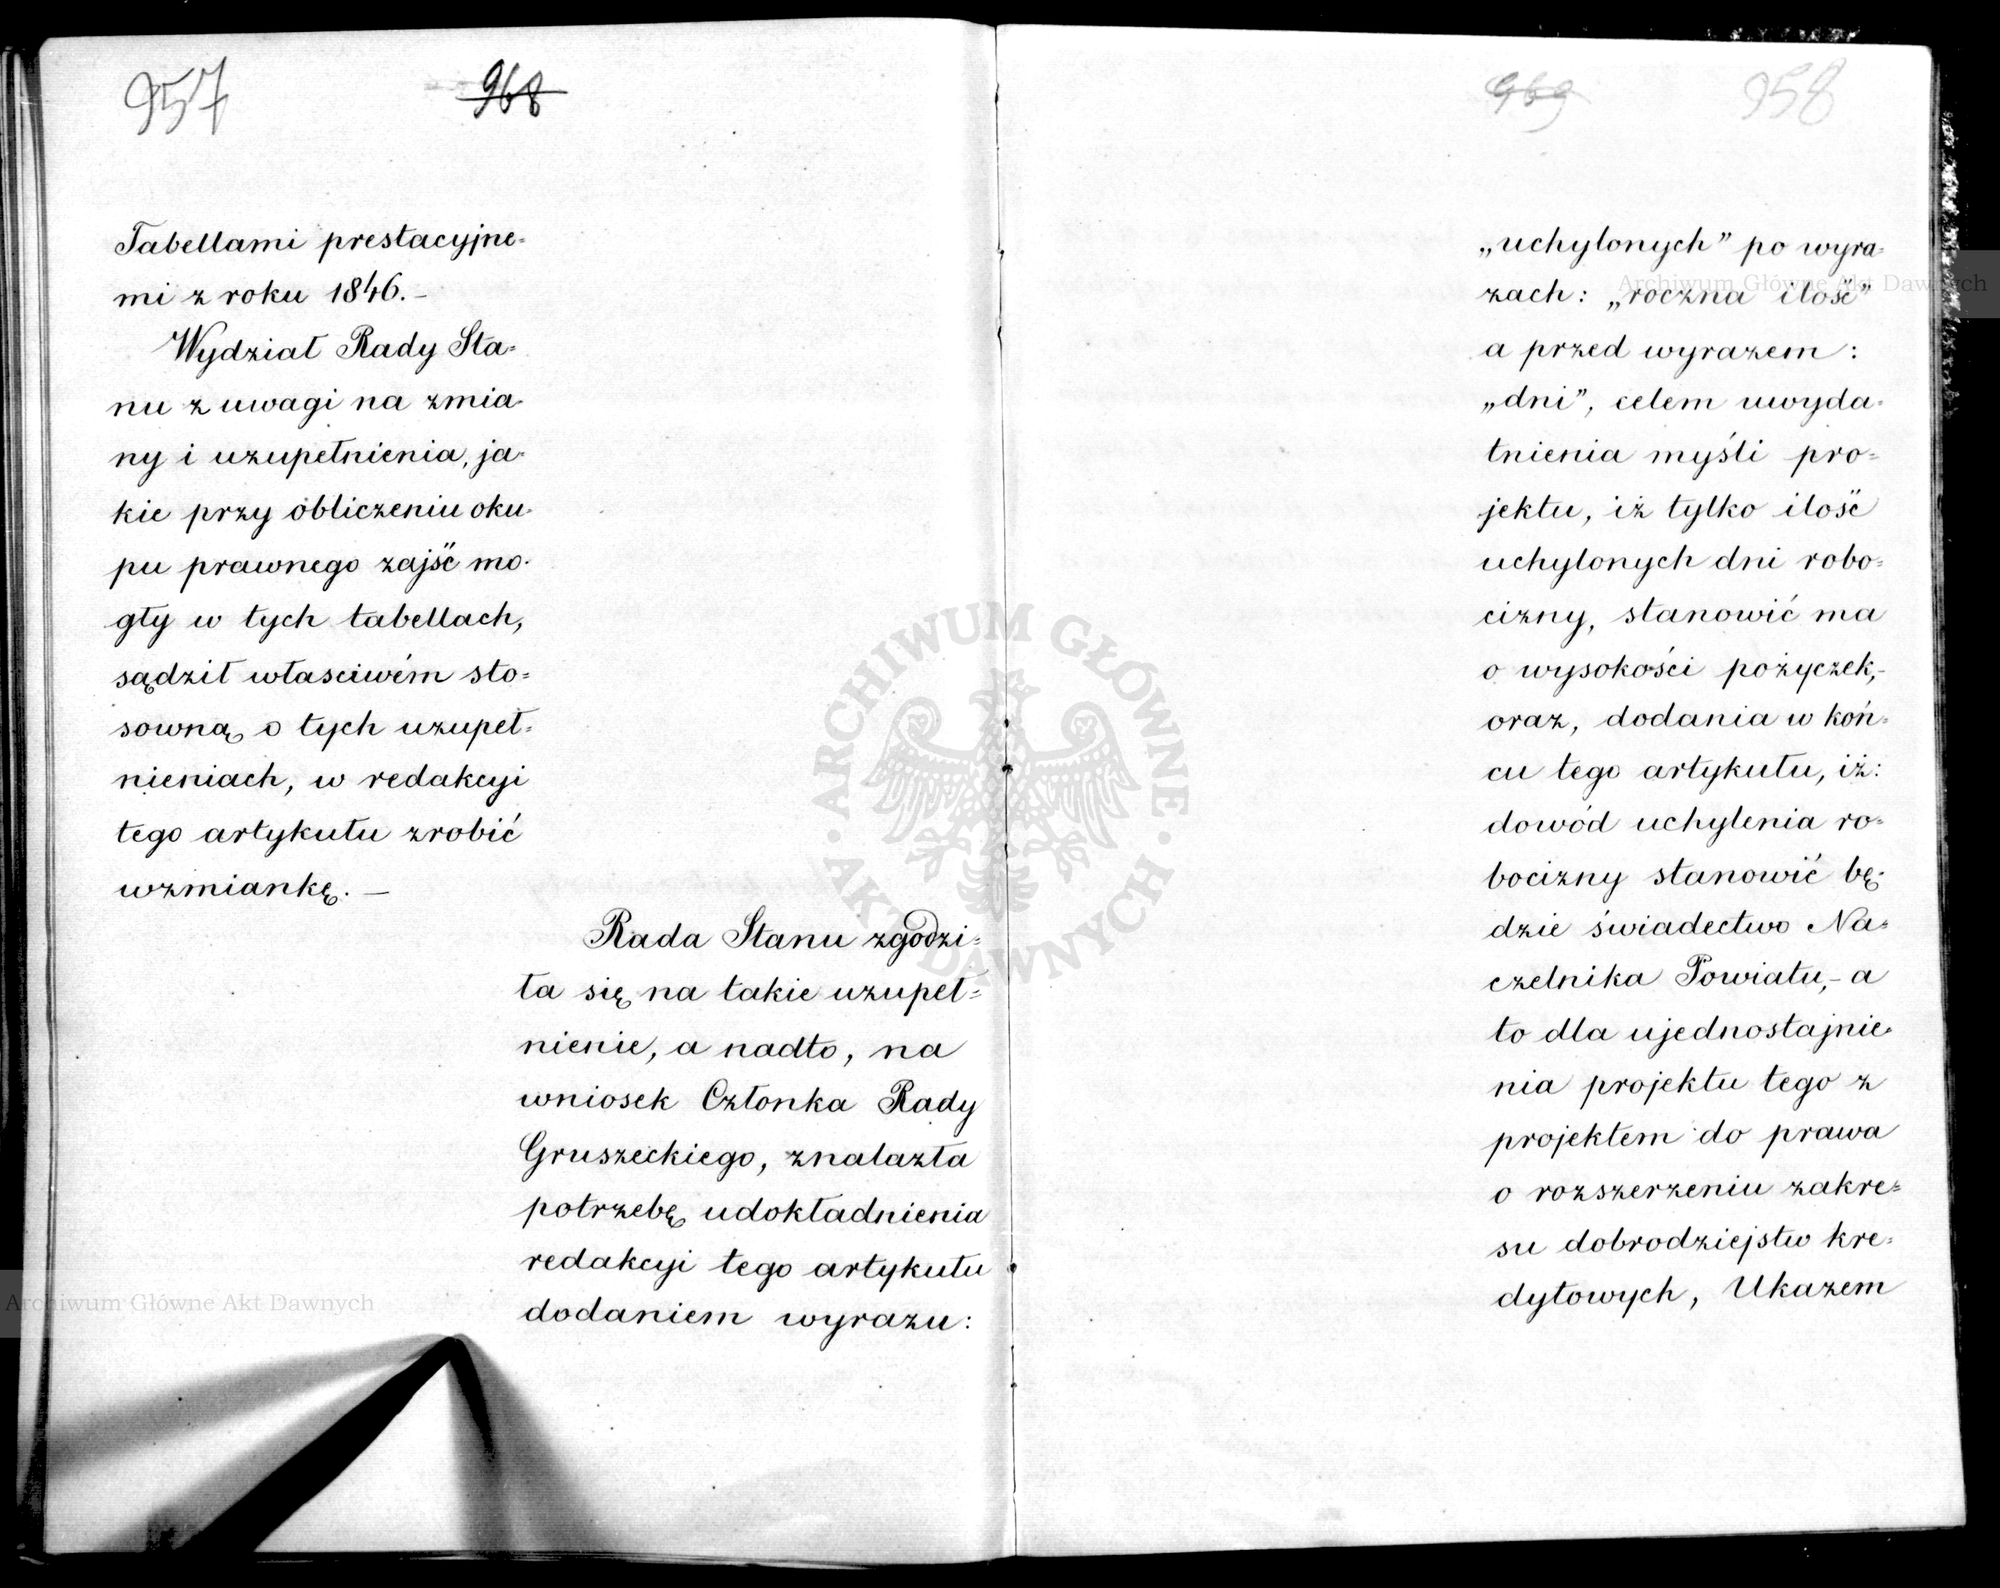 957
968
Tabellami prestacyjne=
mi z roku 1846.–
Wydział Rady Sta=
nu z uwagi na zmia-
ny i uzupełnienia, ja-
kie przy obliczeniu oku-
pu prawnego zajść mo-
gły w tych tabellach,
sądził własciwém sto=
sowną o tych uzupeł=
nieniach, w redakcyi
tego artykułu zrobić
wzmiankę. –
Rada Stanu zgodzi=
ła się na takie uzupeł=
nienie, a nadto, na
wniosek Członka Rady
Gruszeckiego, znalazła
potrzebę udokładnienia
redakcyi tego artykułu
dodaniem wyrazu:
969
958
„uchylonych” po wyra-
zach: „roczna ilość”
a przed wyrazem:
„dni”, celem uwyda-
tnienia myśli pro=
jektu, iż tylko ilość
uchylonych dni robo=
cizny, stanowić ma
o wysokości pożyczek,–
oraz, dodania w koń-
cu tego artykułu, iż:
dowód uchylenia ro=
bocizny stanowić bę-
dzie świadectwo Na=
czelnika Powiatu,– a
to dla ujednostajnie-
nia projektu tego z
projektem do prawa
o rozszerzeniu zakre=
su dobrodziejstw kre=
dytowych, Ukazem
Archiwum Główne Akt Dawnych
Archiwum Główne Akt Dawnych
ARCHIWUM GŁÓWNE · AKT DAWNYCH ·